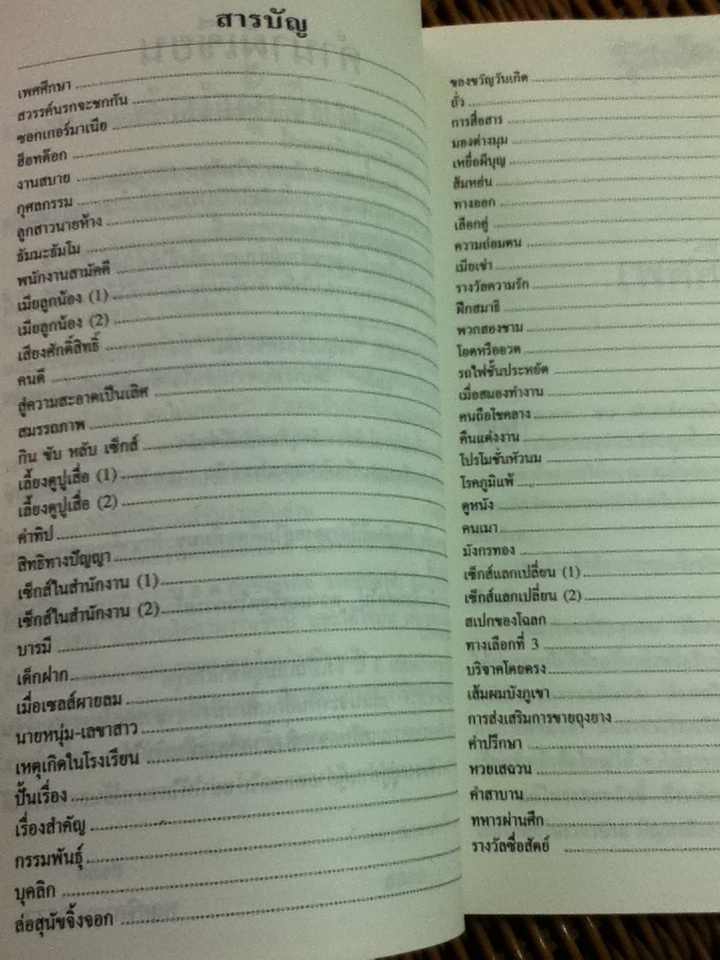 สารบัญ
เพศศึกษา
สวรรค์นรกจะชกกัน
ซอกเกอร์มาเนีย
ฮ็อทด็อก
งานสบาย
กุศลกรรม
ลูกสาวนายห้าง
ธัมมะธัมโม
พนักงานสามัคคี
เมียลูกน้อง (1)
เมียลูกน้อง (2)
เสียงศักดิ์สิทธิ์
คนดี
สู่ความสะอาดเป็นเลิศ
สมรรถภาพ
กิน ขับ หลับ เซ็กส์
เลี้ยงดูปูเสื่อ (1)
เลี้ยงดูปูเสื่อ (2)
คำทิป
สิทธิทางปัญญา
เซ็กส์ในสำนักงาน (1)
เซ็กส์ในสำนักงาน (2)
บารมี
เด็กฝาก
เมื่อเซลส์ผายลม
นายหนุ่ม-เลขาสาว
เหตุเกิดในโรงเรียน
ปั้นเรื่อง
เรื่องสำคัญ
กรรมพันธุ์
บุคลิก
ล่อสุนัขจิ้งจอก
ของขวัญวันเกิด
ถั่ว
การสื่อสาร
มองต่างมุม
เหยื่อผีบุญ
ส้มหล่น
ทางออก
เลือกคู่
ความถ่อมตน
เมียเช่า
รางวัลความรัก
ฝึกสมาธิ
พวกสองชาม
โอดหรืออวด
รถไฟชั้นประหยัด
เมื่อสมองทำงาน
คนถือโชคลาง
คืนแต่งงาน
โปรโมชั่นหัวนม
โรคภูมิแพ้
ดูหนัง
คนเมา
มังกรทอง
เซ็กส์แลกเปลี่ยน (1)
เซ็กส์แลกเปลี่ยน (2)
สเปกของโฉลก
ทางเลือกที่ 3
บริจาคโดยตรง
เส้นผมบังภูเขา
การส่งเสริมการขายถุงยาง
คำปรึกษา
ทวยเสฉวน
คำสาบาน
ทหารผ่านศึก
รางวัลซื่อสัตย์